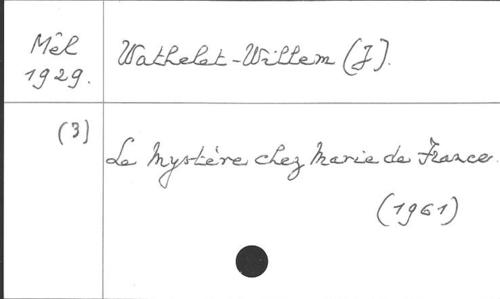 Mêl
1929.
Wathelet-Willem (J).
(3)
Le Mystère chez Marie de France.
(1961)